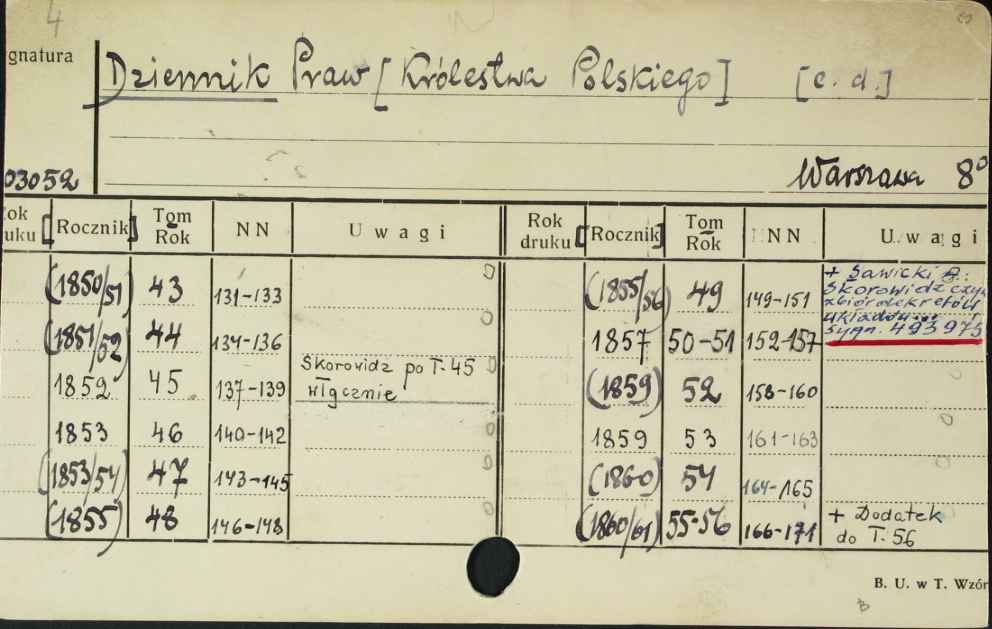 4
gnatura
Dziennik Praw [Królestwa Polskiego] [c. d.]
03052
Warszawa 8°
ok
uku [Rocznik] Tom Rok NN Uwagi Rok druku [Rocznik] Tom Rok NN Uwagi
(1850/51) 43 131-133 (1855/56) 49 149-151 + Sawicki A.:
Skorowidz czyli
zbiór dekretów
układów...
(1851/52) 44 134-136 1857 50-51 152-157 sygn. 493975
1852 45 137-139 Skorowidz po T. 45 (1859) 52 158-160
włącznie
1853 46 140-142 1859 53 161-163
(1853/54) 47 143-145 (1860) 54 164-165
(1855) 48 146-148 (1860/61) 55-56 166-171 + Dodatek
do T. 56
B. U. w T. Wzór